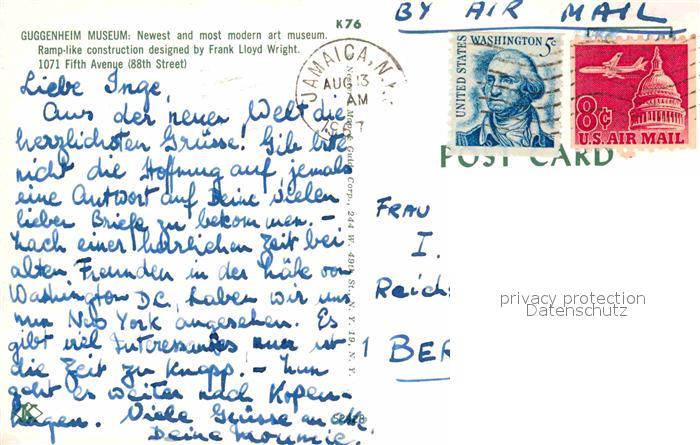 K76
BY AIR MAIL
GUGGENHEIM MUSEUM: Newest and most modern art museum.
Ramp-like construction designed by Frank Lloyd Wright.
1071 Fifth Avenue (88th Street)
Liebe Inge,
Aus der neuen Welt die
herzlichsten Grüsse. Gib bitte
nicht die Hoffnung auf, jemals
eine Antwort auf Deine vielen
lieben Briefe zu bekommen. –
Nach einer herrlichen Zeit bei
alten Freunden in der Nähe von
Washington DC, haben wir uns
nun New York angesehen. Es
gibt viel Interessantes, nur ist
die Zeit zu knapp. – Nun
geht es weiter nach Kopen-
hagen. Viele Grüsse an alle
Deine
JAMAICA, N.Y.
AUG 13
AM
Guild Corp., 244 W. 49th St., N.Y. 19, N.Y.
UNITED STATES
WASHINGTON 5c
8¢
U.S. AIR MAIL
POST CARD
FRAU
I.
Reichs
1 BER
privacy protection
Datenschutz